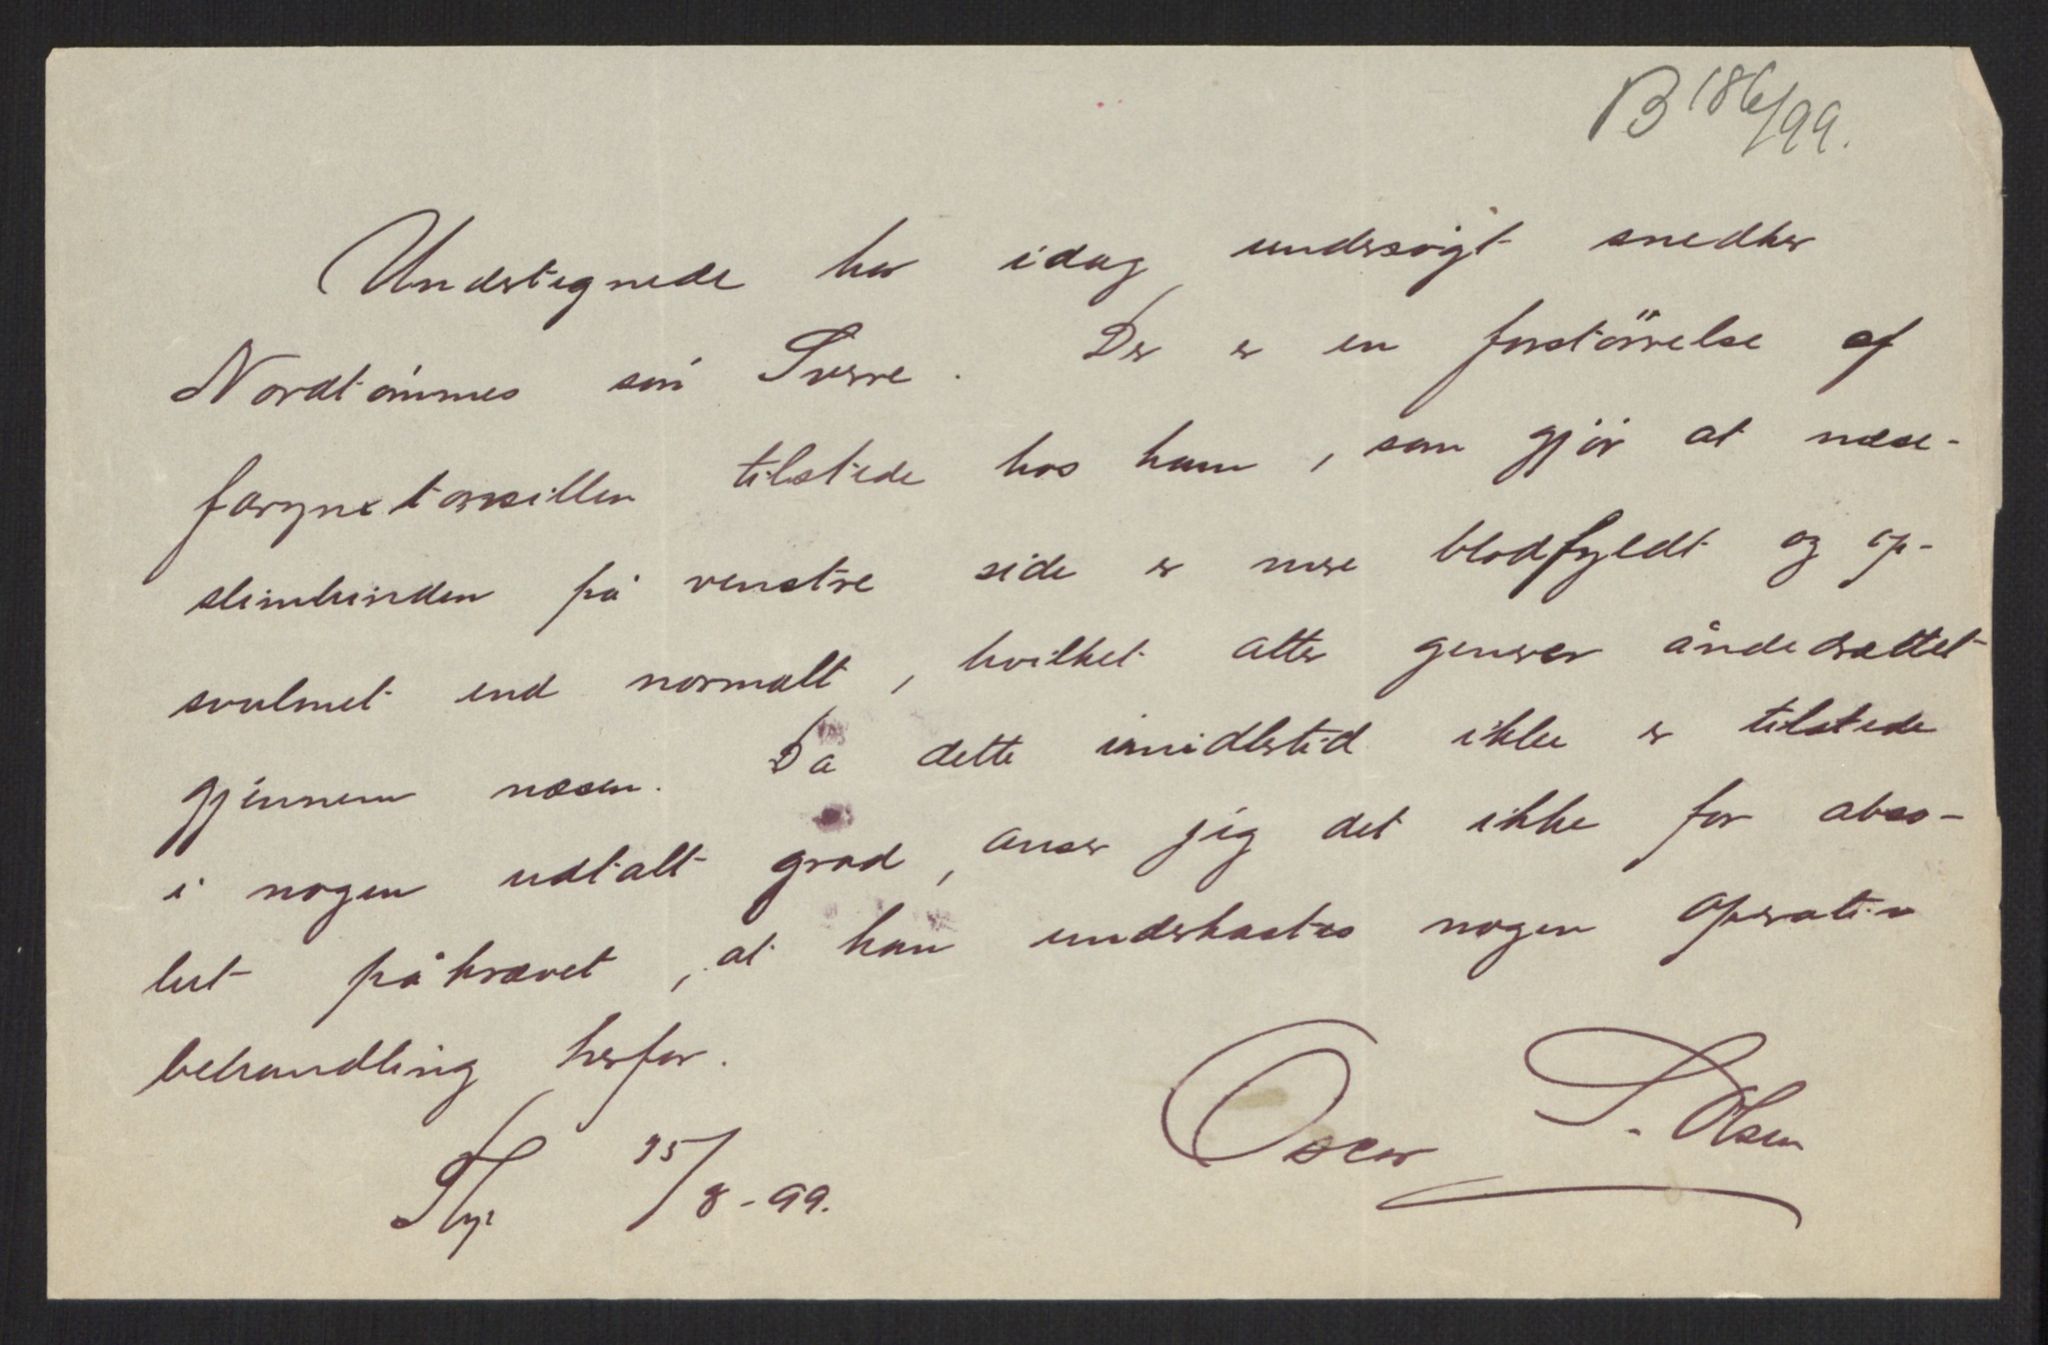 B 186/99.
Undertegnede har idag undersögt snedker
Nordtømmes søn Sverre. Der er en forstörrelse af
farynxtonsillen tilstede hos ham, som gjør at næse-
slimhinden på venstre side er mere blodfyldt og op-
svulmet end normalt, hvilket atter generer åndedrættet
gjennem næsen. Da dette imidlertid ikke er tilstede
i nogen udtalt grad, anser jeg det ikke for abso-
lut påkrævet, at han underkastes nogen operativ
behandling herfor.
Oscar S. Olsen
25/8-99.